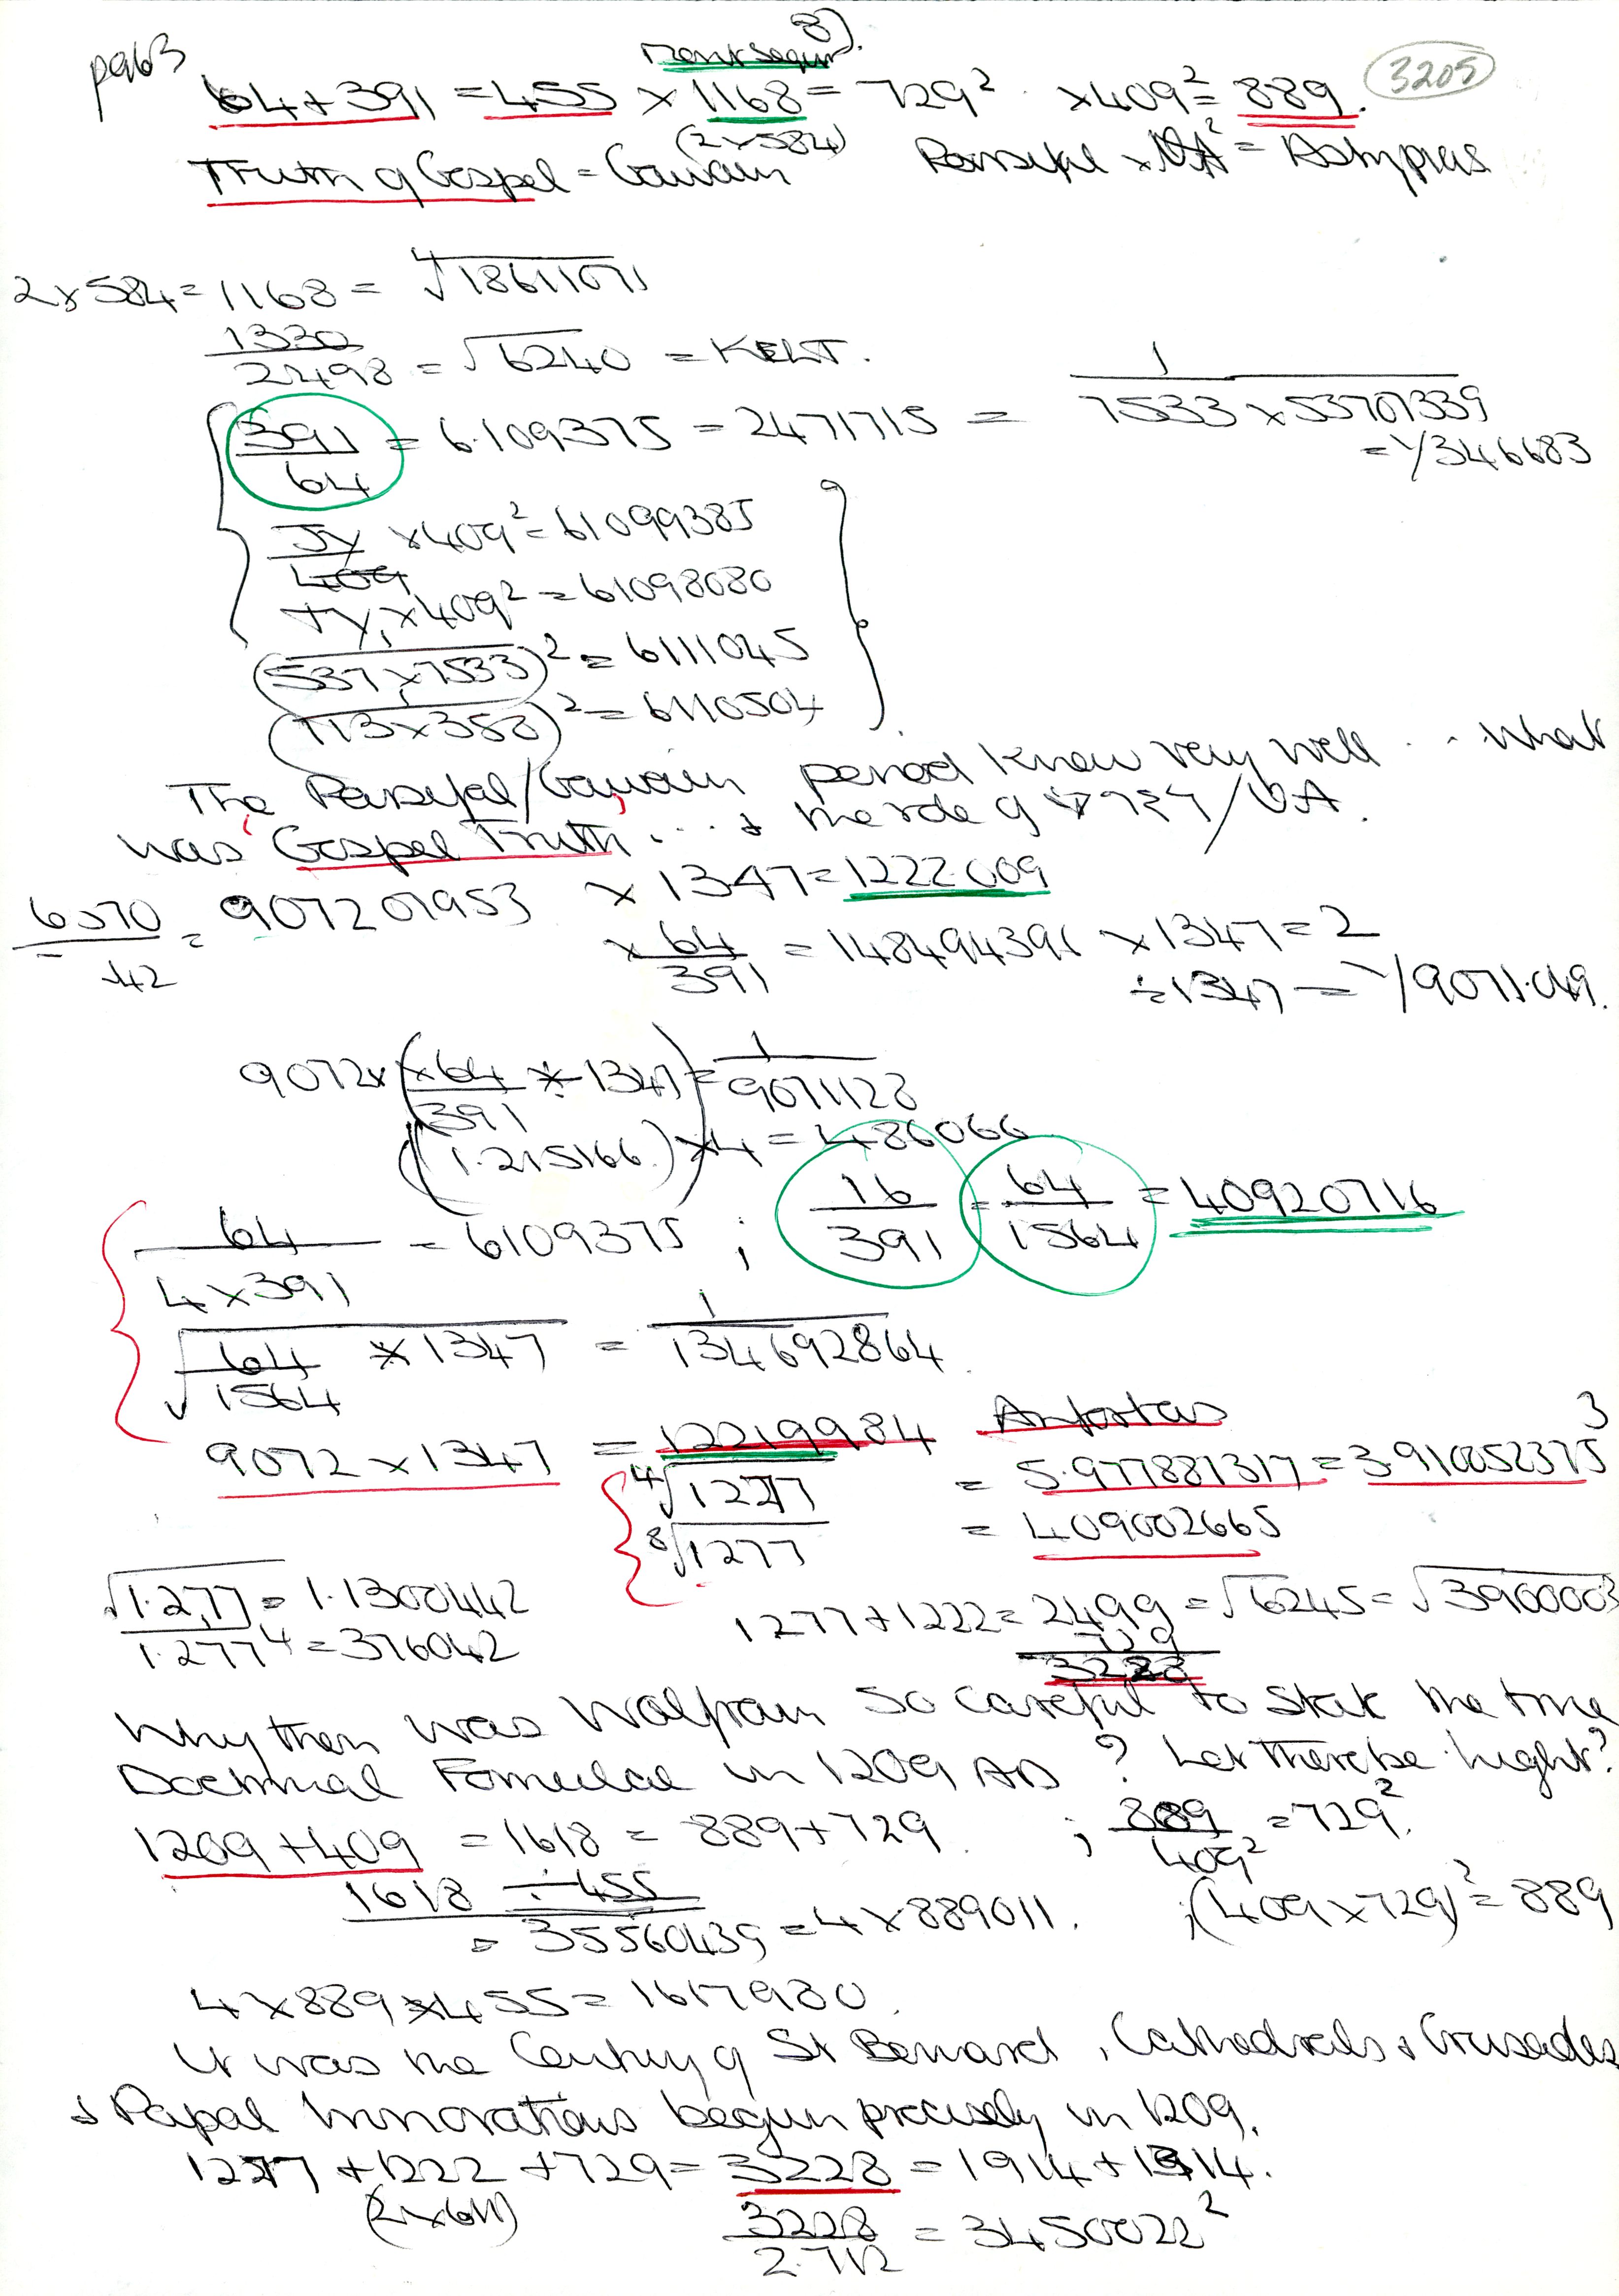 pg63
8).
Montsegur
3205
64 + 391 = 455 × 1168 = 729² × 409² = 889.
(2×584)
Truth of Gospel = Gawain Parsifal × VA² =
2×584 = 1168 = ∜18611071
1330
22498 = √6240 = KELT.
391/64 = 6.109375 = 2471715 = 1/(7533 × 53707339)
= 1/346683
JY/409 × 409² = 61099385
TY, × 409² = 61098080
(1/(537 × 7533))² = 6111045
(1/(113 × 358))² = 6110504
The Parsifal/Gawain period knew very well .. what
was 'Gospel Truth' ... & the role of 729/VA.
6570/42 = 907207953 × 1347 = 1222.009
× 64/391 = 148494391 × 1347 = 2
÷ 1347 = 1/9071.049.
9072 × (× 64/391 × 1347) = 1/9071128
(1.215166) × 4 = 486066
64/(4 × 391) = 6109375 ; 16/391 = 64/1564 = 40920716
√(64/1564) × 1347 = 1/134692864
9072 × 1347 = 12219984 Anfortas
∜1277 = 5.977881317 = 3.910052375³
⁸√1277 = 409002665
√1.277 = 1.1300442
1.277⁴ = 376042
1277 + 1222 = 2499 = √6245 = √3900003
729
3228
Why then was Wolfram so careful to state the time
Doctrinal Formulae in 1209 AD ? Let There be light?
1209 + 409 = 1618 = 889 + 729 ; 889/409² = 729².
1618 ÷ 455
= 35560439 = 4 × 889011. ; (409 × 729)² = 889
4 × 889 × 455 = 1617980.
It was the Century of St Bernard, Cathedrals & Crusades
& Papal Innovations begun precisely in 1209.
1277 + 1222 + 729 = 3228 = 1914 + 1314.
(2×611)
3228/2.712 = 3450022²